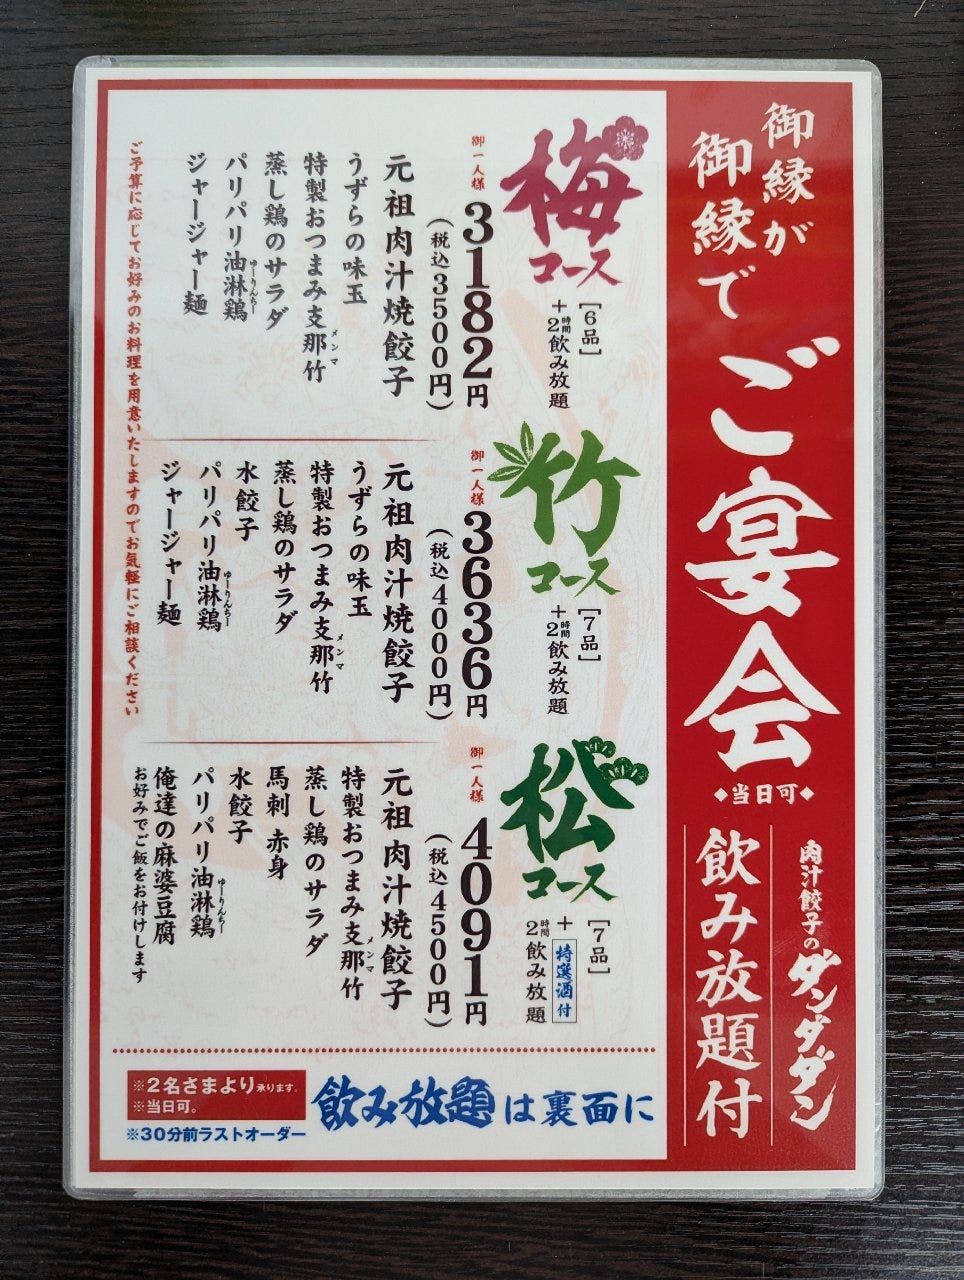 御縁が
御縁で
ご宴会
◆当日可◆
肉汁餃子のダンダダン
飲み放題付
梅コース
[6品]
+2時間飲み放題
御一人様
3182円
(税込3500円)
元祖肉汁焼餃子
うずらの味玉
特製おつまみ支那竹
メンマ
蒸し鶏のサラダ
パリパリ油淋鶏
ゆーりんちー
ジャージャー麺
竹コース
[7品]
+2時間飲み放題
御一人様
3636円
(税込4000円)
元祖肉汁焼餃子
うずらの味玉
特製おつまみ支那竹
メンマ
蒸し鶏のサラダ
水餃子
パリパリ油淋鶏
ゆーりんちー
ジャージャー麺
松コース
[7品]
+特選酒付
2時間飲み放題
御一人様
4091円
(税込4500円)
元祖肉汁焼餃子
特製おつまみ支那竹
メンマ
蒸し鶏のサラダ
馬刺 赤身
水餃子
パリパリ油淋鶏
ゆーりんちー
俺達の麻婆豆腐
お好みでご飯をお付けします
ご予算に応じてお好みのお料理を用意いたしますのでお気軽にご相談ください
※2名さまより承ります。
※当日可。
※30分前ラストオーダー
飲み放題は裏面に